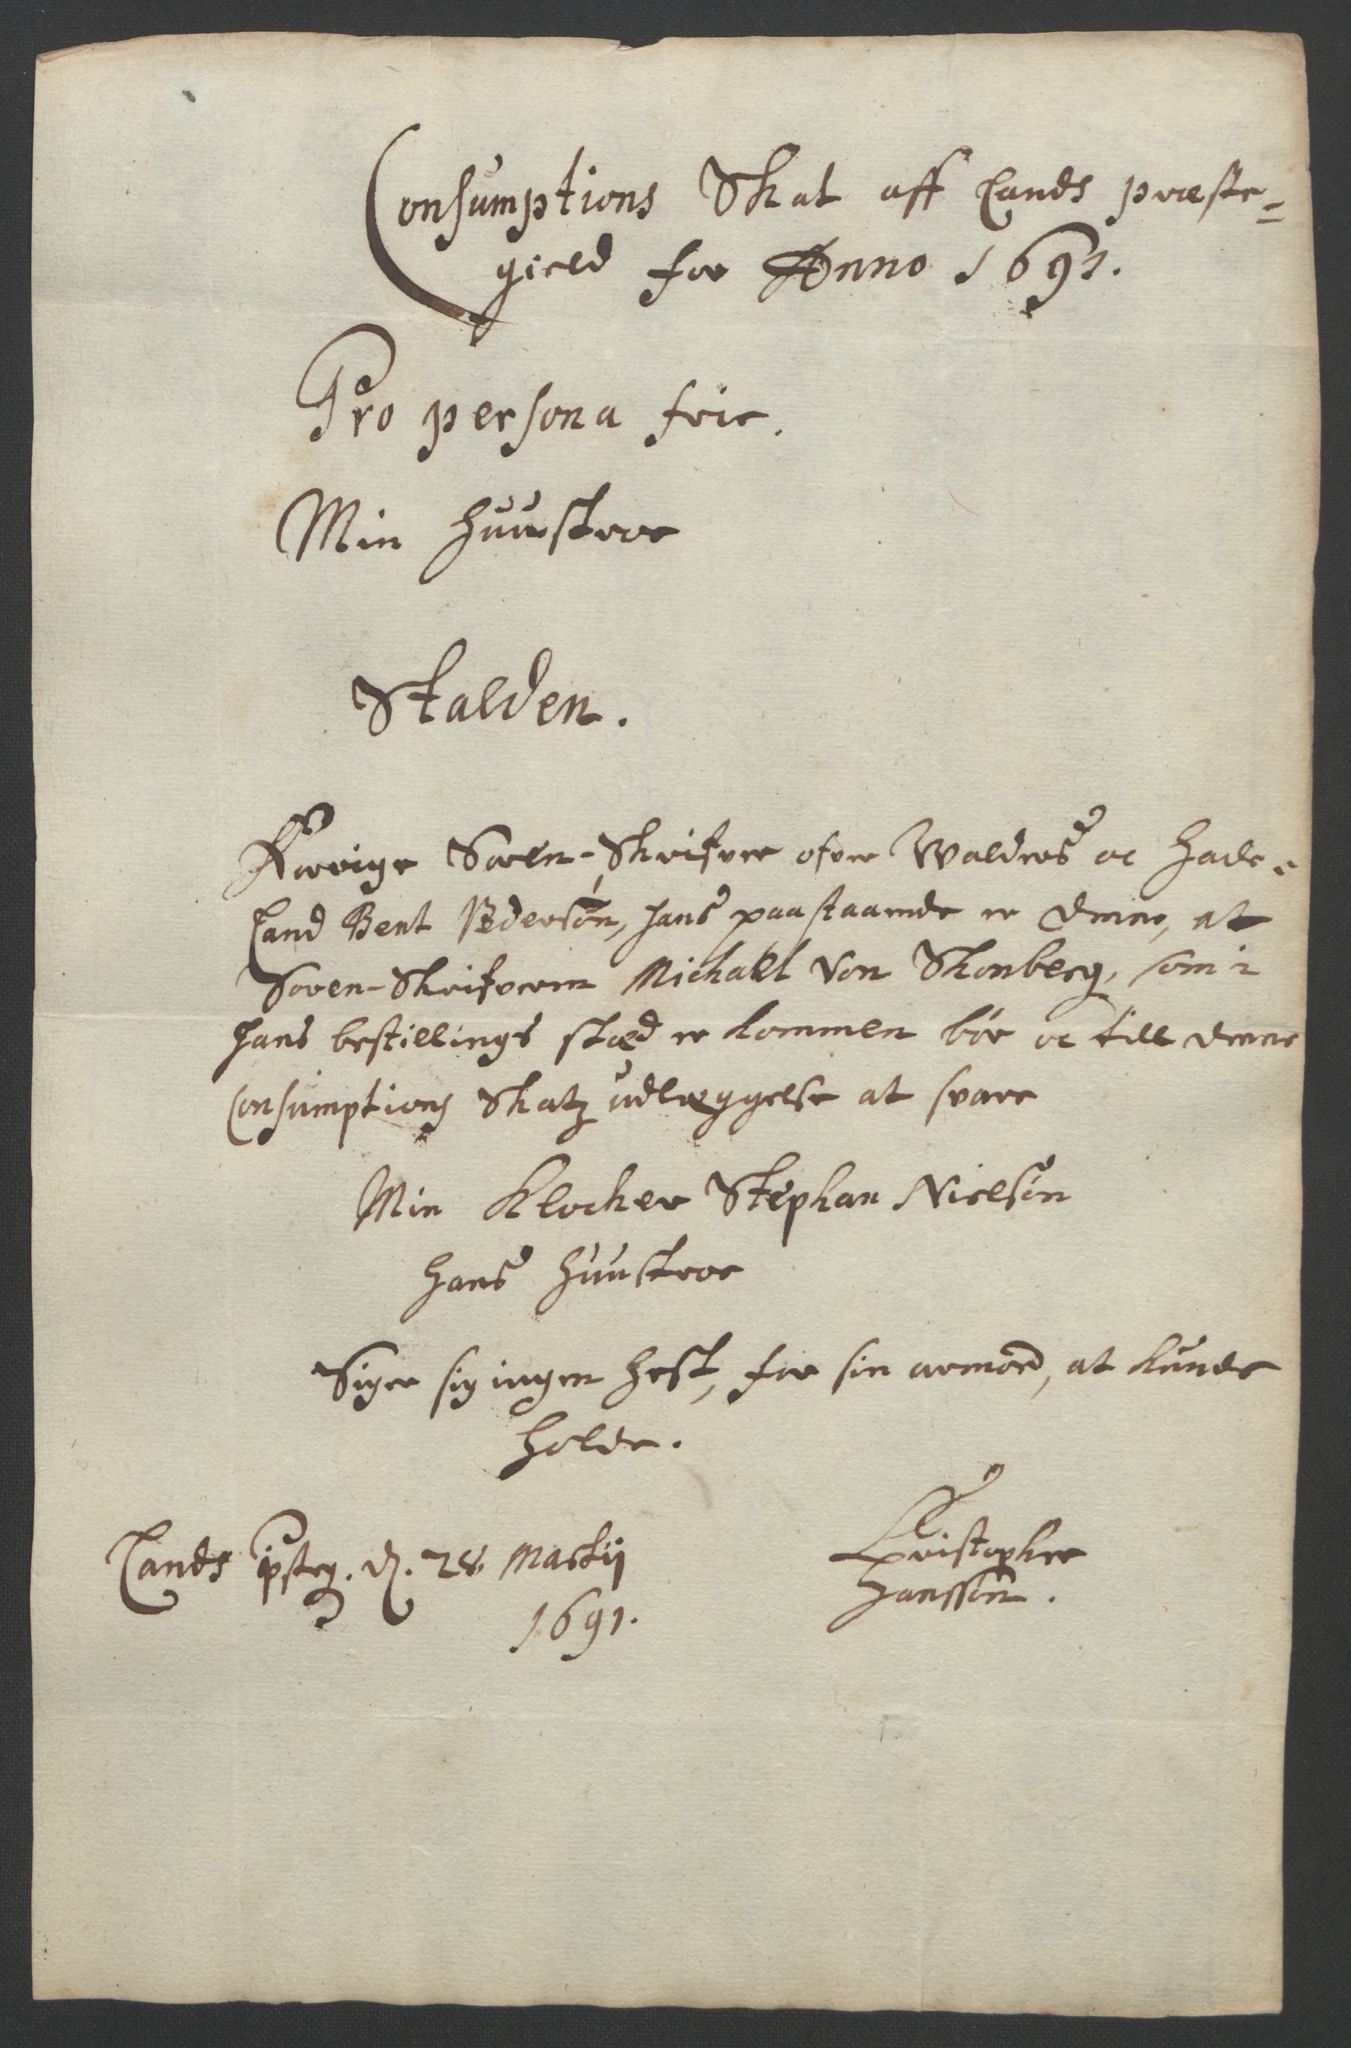 Consumptions Skat aff Lands præste-
gield for Anno 1691.
Pro persona frie.
Min huustroe
Stalden.
Forrige Soren-Skrifver ofver Waldres oc Hade-
land Bent Pedersøn, hans paastaaende er denne, at
Soren-Skrifveren Michakl Von Skonberg, som i
hans bestillings stæd er kommen bør oc till denne
Consumptions Skatz udlæggelse at svare
Min Klocker Stephan Nielsøn
hans huustroe
Siger sig ingen hest, for sin armod, at kunde
holde.
Lands psteg. d. 28 Martij
1691.
Christopher
Hanssøn.